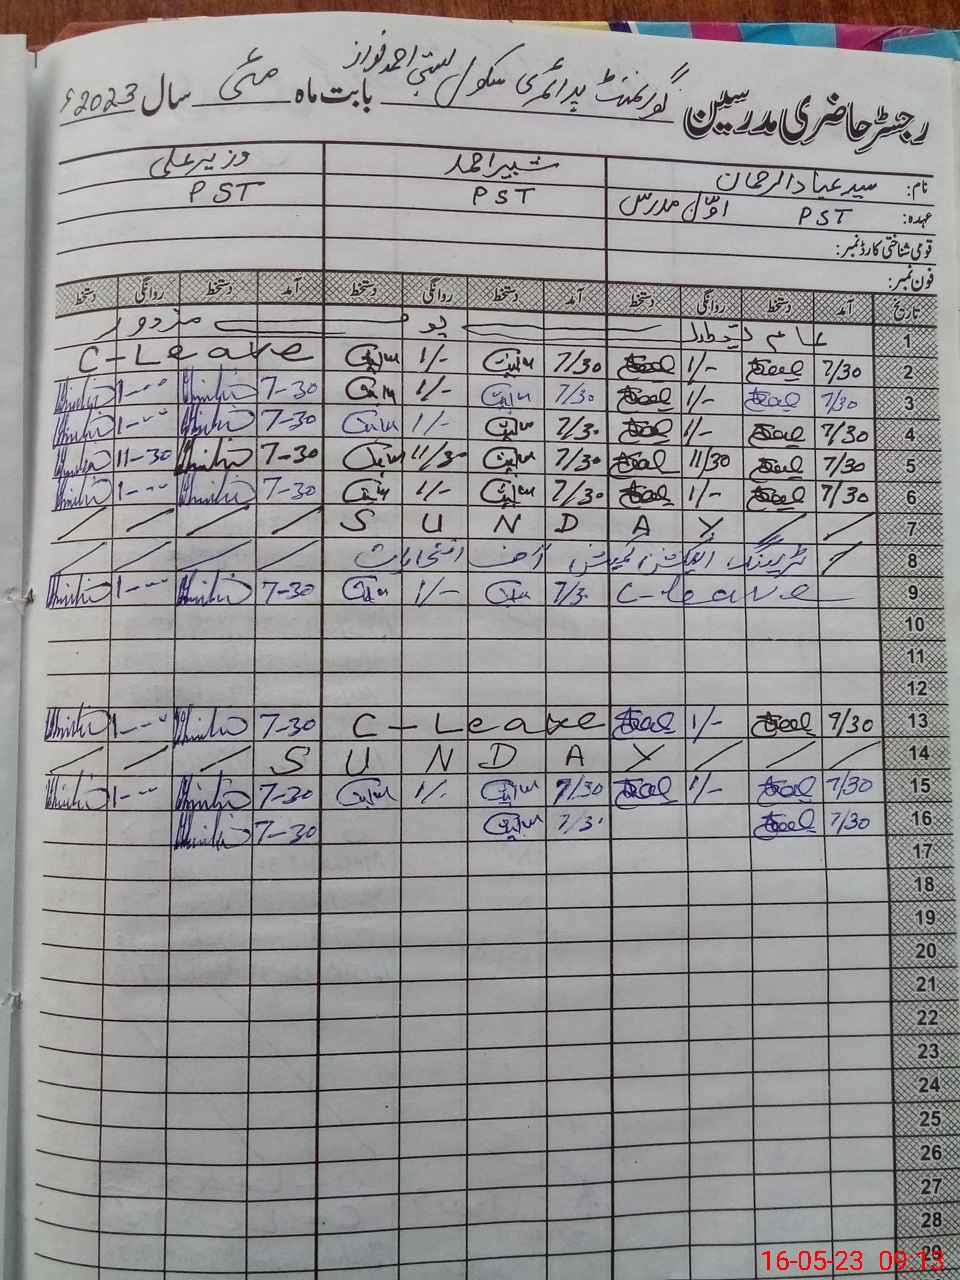 رجسٹر حاضری مدرسین گورنمنٹ پرائمری سکول بستی احمد نواز بابت ماہ مئی سال 2023ء
نام: سید عباد الرحمان شبیر احمد وزیر علی
عہدہ: PST اوّل مدرس PST PST
قومی شناختی کارڈ نمبر:
فون نمبر:
تاریخ آمد دستخط روانگی دستخط آمد دستخط روانگی دستخط آمد دستخط روانگی دستخط
1 عام تعطیل یوم مزدور
2 7/30 1/- 7/30 1/- C-Leave
3 7/30 1/- 7/30 1/- 7-30 1---
4 7/30 1/- 7/30 1/- 7-30 1---
5 7/30 11/30 7/30 11/30 7-30 11-30
6 7/30 1/- 7/30 1/- 7-30 1---
7 SUNDAY
8 ٹریننگ الیکشن کمیشن آف انتخابات
9 C-leave 7/30 1/- 7-30 1---
10
11
12
13 7/30 1/- C-Leave 7-30 1---
14 SUNDAY
15 7/30 1/- 7/30 1/- 7-30 1---
16 7/30 7/30 7-30
17
18
19
20
21
22
23
24
25
26
27
28
29
16-05-23 09:13